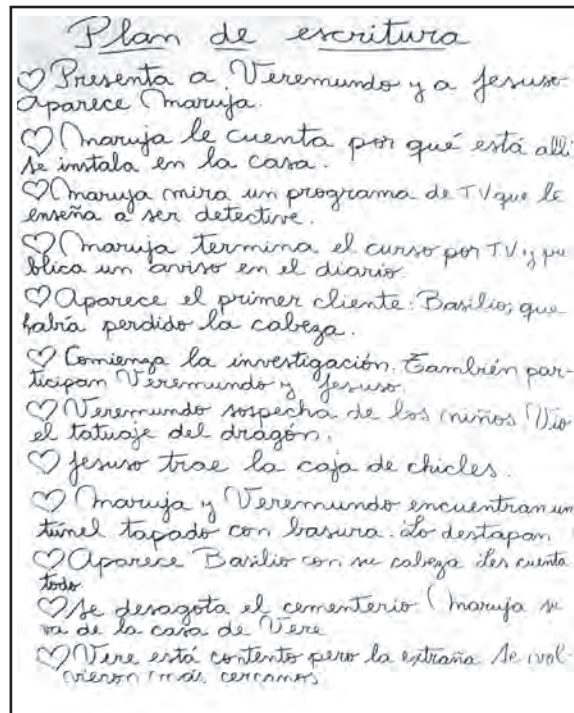 Plan de escritura
Presenta a Veremundo y a Jesuso
Aparece Maruja.
Maruja le cuenta por qué está allí
se instala en la casa.
Maruja mira un programa de TV que le
enseña a ser detective.
Maruja termina el curso por TV y pu
blica un aviso en el diario.
Aparece el primer cliente: Basilio, que
había perdido la cabeza.
Comienza la investigación. También par-
ticipan Veremundo y Jesuso.
Veremundo sospecha de los niños. Vio
el tatuaje del dragón.
Jesuso trae la caja de chicles.
Maruja y Veremundo encuentran un
túnel tapado con basura. Lo destapan
Aparece Basilio con su cabeza. Les cuenta
todo
Se desagota el cementerio. Maruja se
va de la casa de Vere
Vere está contento pero la extraña. Se vol-
vieron más cercanos